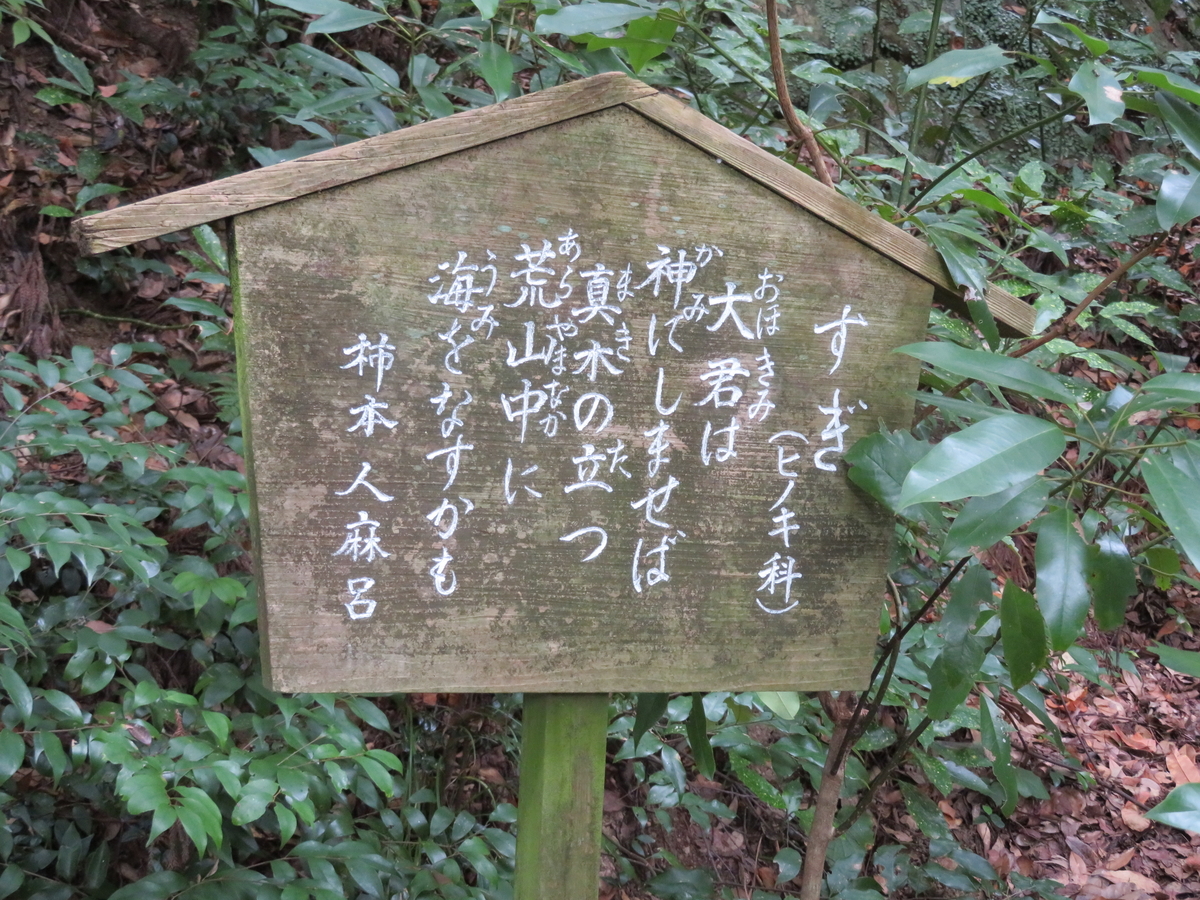 すぎ
(ヒノキ科)
大君は
おほきみ
神にしませば
かみ
真木の立つ
まき
た
荒山中に
あらやまなか
海をなすかも
うみ
柿本人麻呂